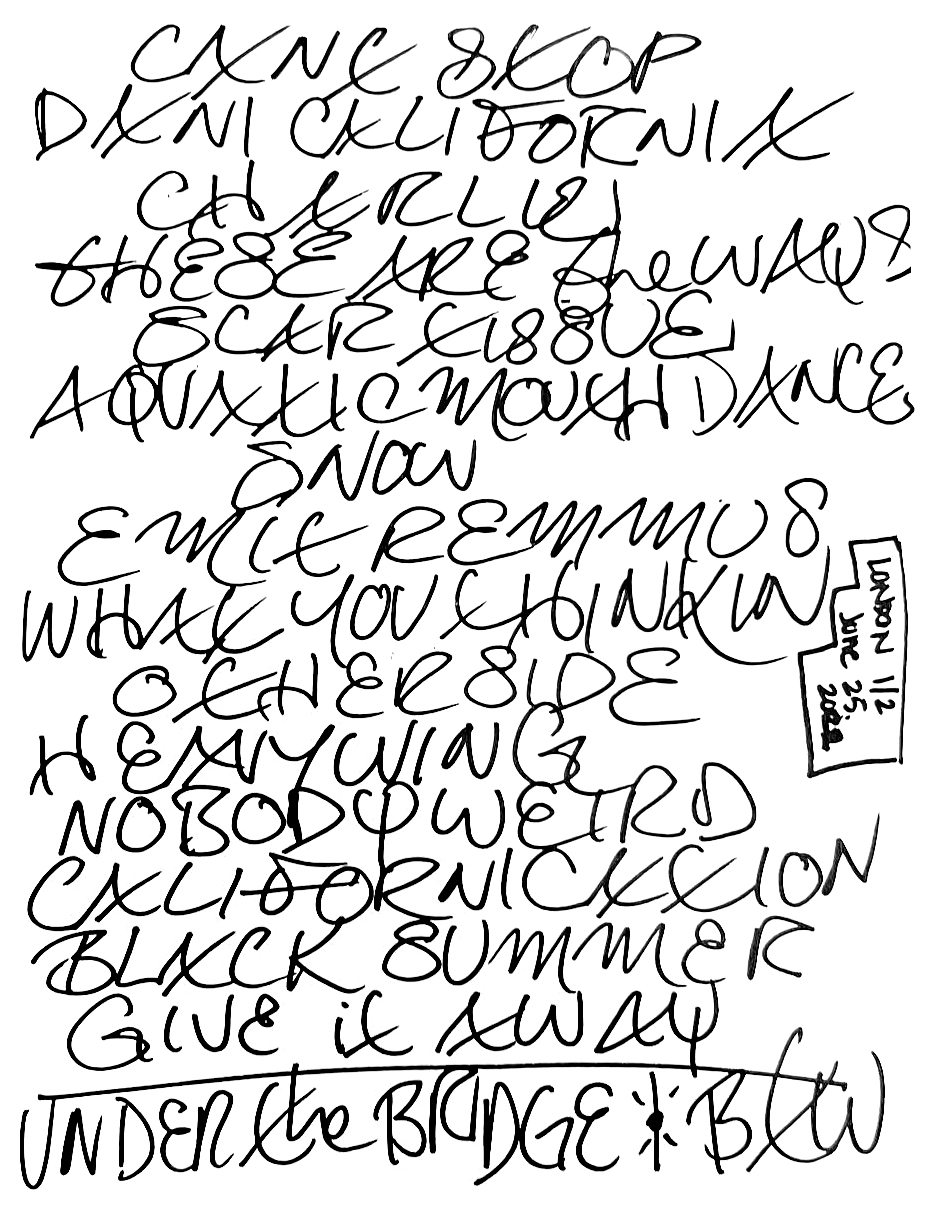 CAN'T STOP
DANI CALIFORNIA
CHARLIE
THESE ARE the WAYS
SCAR TISSUE
AQUATIC MOUTH DANCE
SNOW
EMIT REMMUS
WHAT YOU THINKIN
OTHERSIDE
HEAVY WING
NOBODY WEIRD
CALIFORNICATION
BLACK SUMMER
GIVE it AWAY
UNDER the BRIDGE * BTW
LONDON 1/2
JUNE 25.
2022